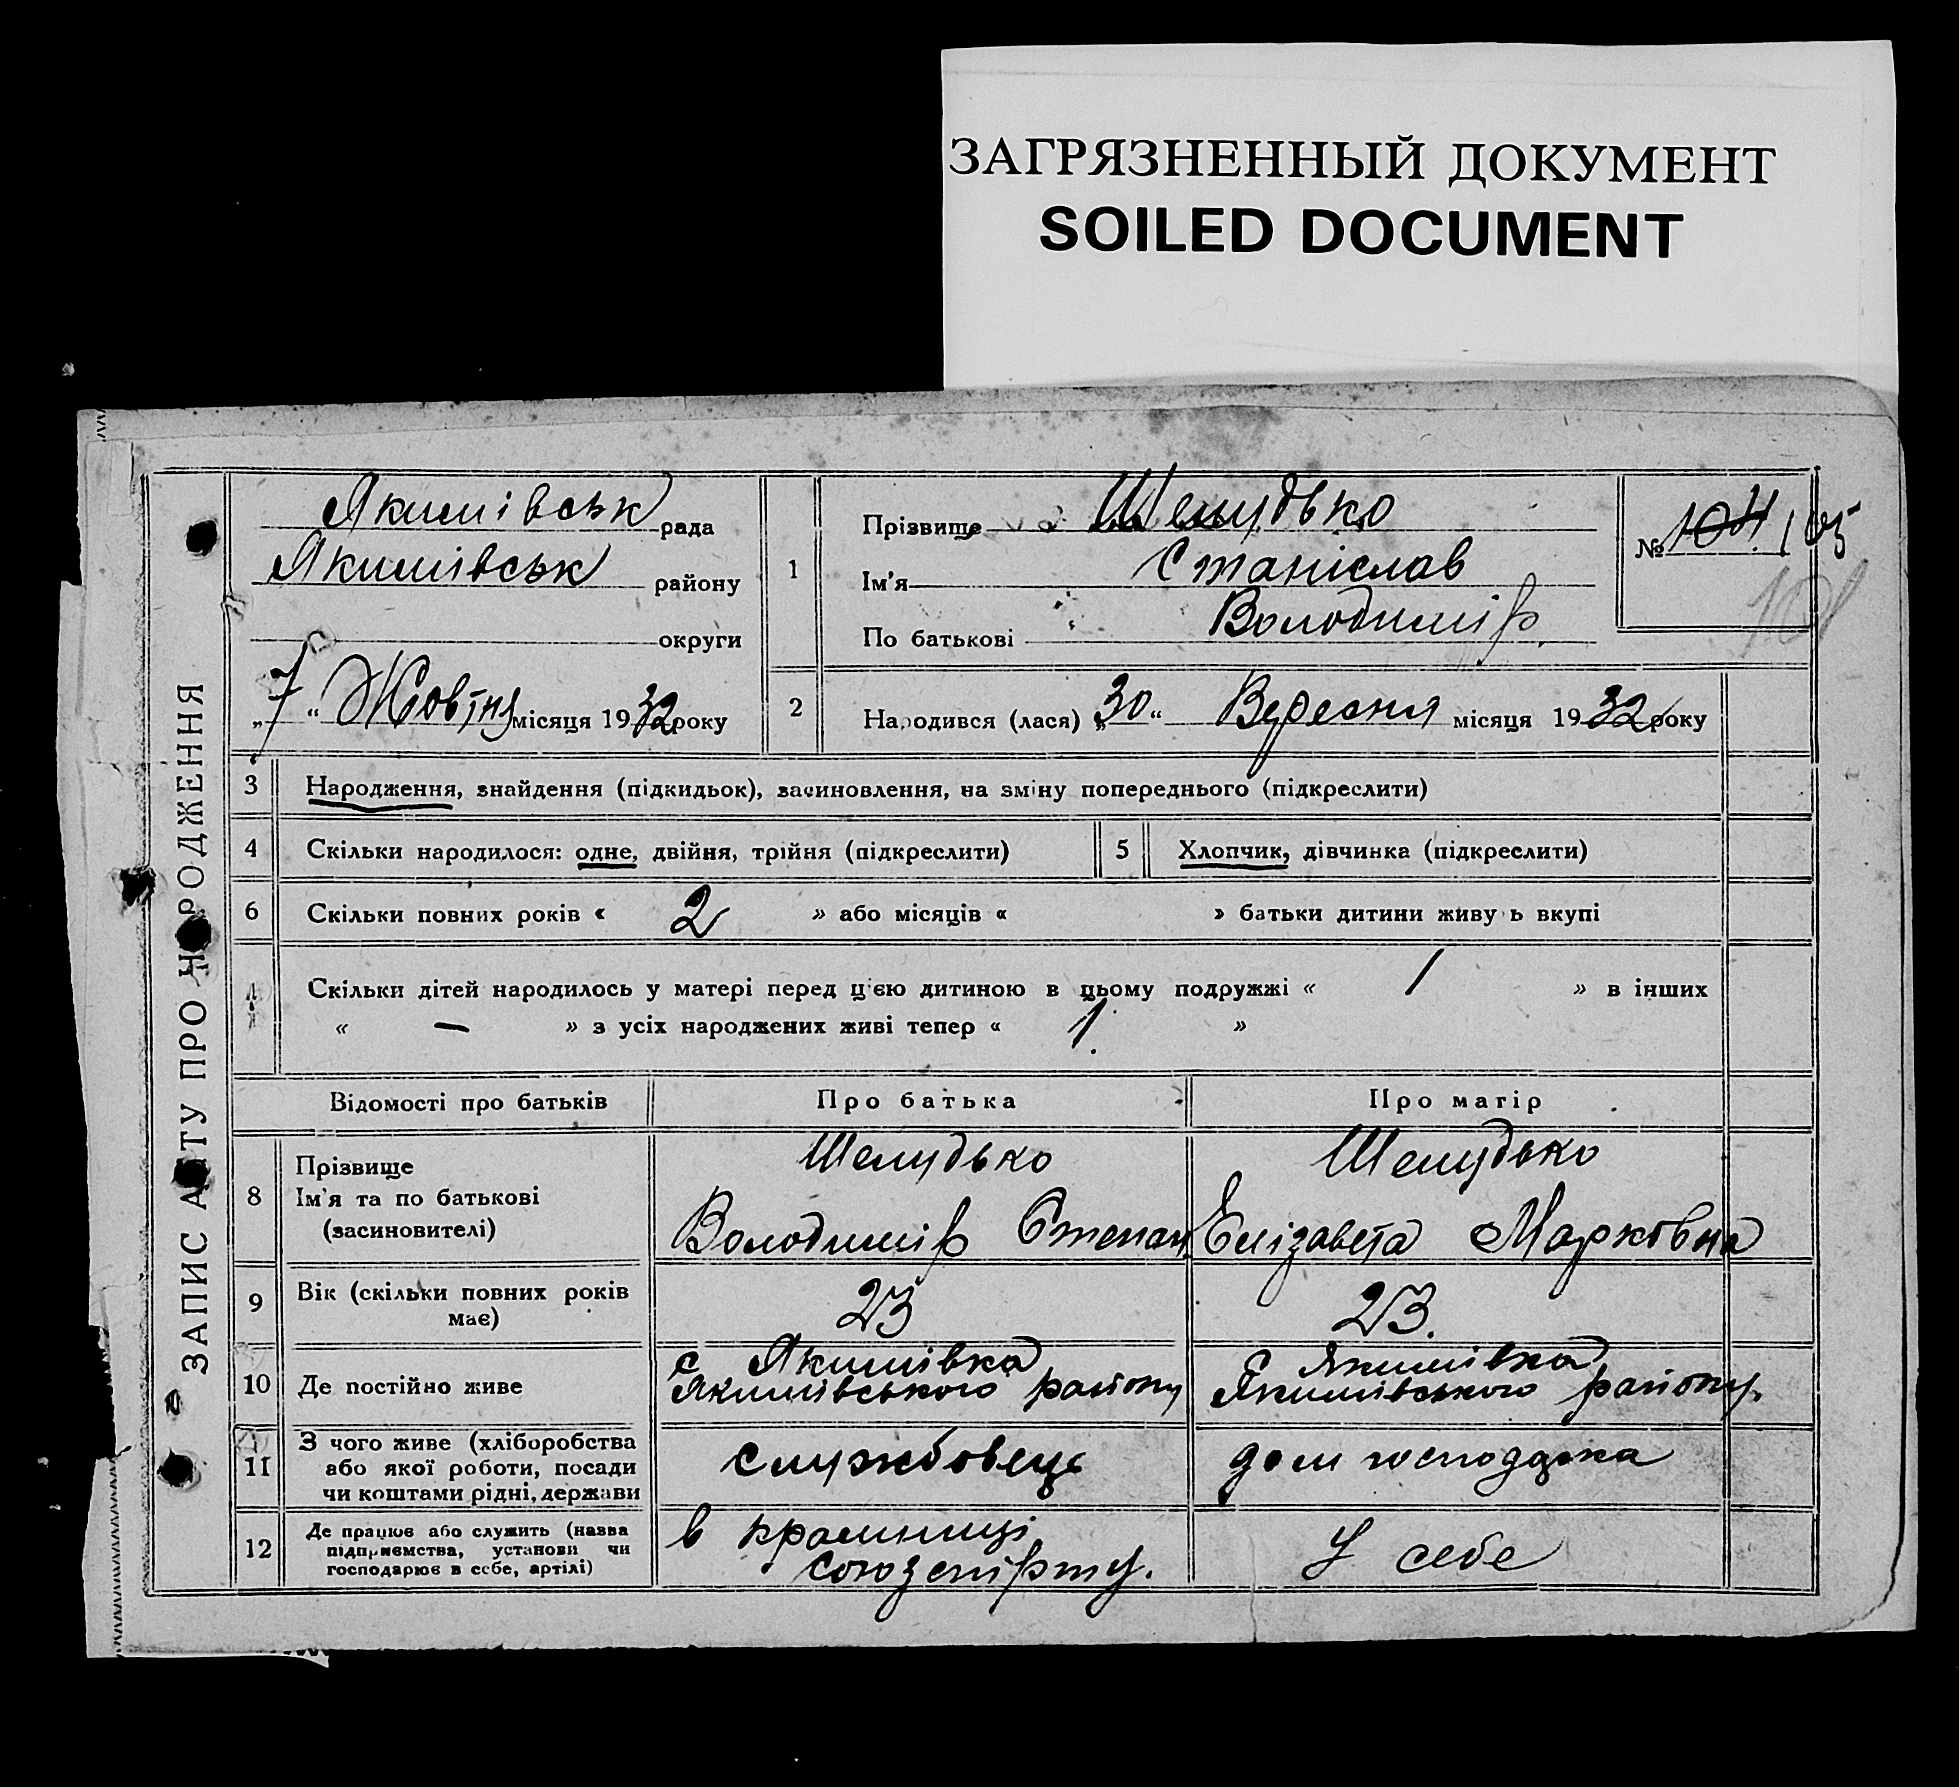 ЗАГРЯЗНЕННЫЙ ДОКУМЕНТ
SOILED DOCUMENT
ЗАПИС АКТУ ПРО НАРОДЖЕННЯ
Якимівськ рада
Якимівськ району
округи
„7“ Жовтня місяця 1932 року
1
Прізвище Шелудько
Ім'я Станіслав
По батькові Володимір.
№ 104 105
101
2 Народився (лася) „30“ Вересня місяця 1932 року
3 Народження, знайдення (підкидьок), засиновлення, на зміну попереднього (підкреслити)
4 Скільки народилося: одне, двійня, трійня (підкреслити)
5 Хлопчик, дівчинка (підкреслити)
6 Скільки повних років « 2 » або місяців « » батьки дитини живуть вкупі
Скільки дітей народилось у матері перед цією дитиною в цьому подружжі « 1 » в інших
« — » з усіх народжених живі тепер « 1. »
Відомості про батьків Про батька Про матір
8 Прізвище
Ім'я та по батькові
(засиновителі)
Шелудько
Володимір Степан.
Шелудько
Елізавета Марковна
9 Вік (скільки повних років
має)
23
23.
10 Де постійно живе
с Якимівка
Якимівського району
с Якимівка
Якимівського району.
11 З чого живе (хліборобства
або якої роботи, посади
чи коштами рідні, держави
службовець
дом господарка
12 Де працює або служить (назва
підприємства, установи чи
господарює в себе, артілі)
в крамниці
союзспірту.
У себе